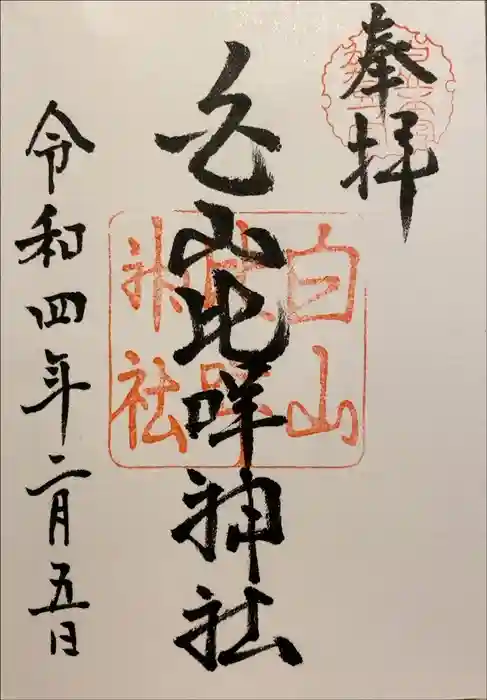 奉拝
白山比咩神社
白山
比咩
神社
令和四年二月五日